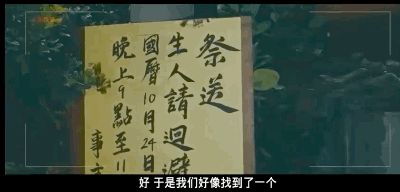 祭送
生人請迴避
國曆10月24日
晚上9點至11
事
好 于是我们好像找到了一个